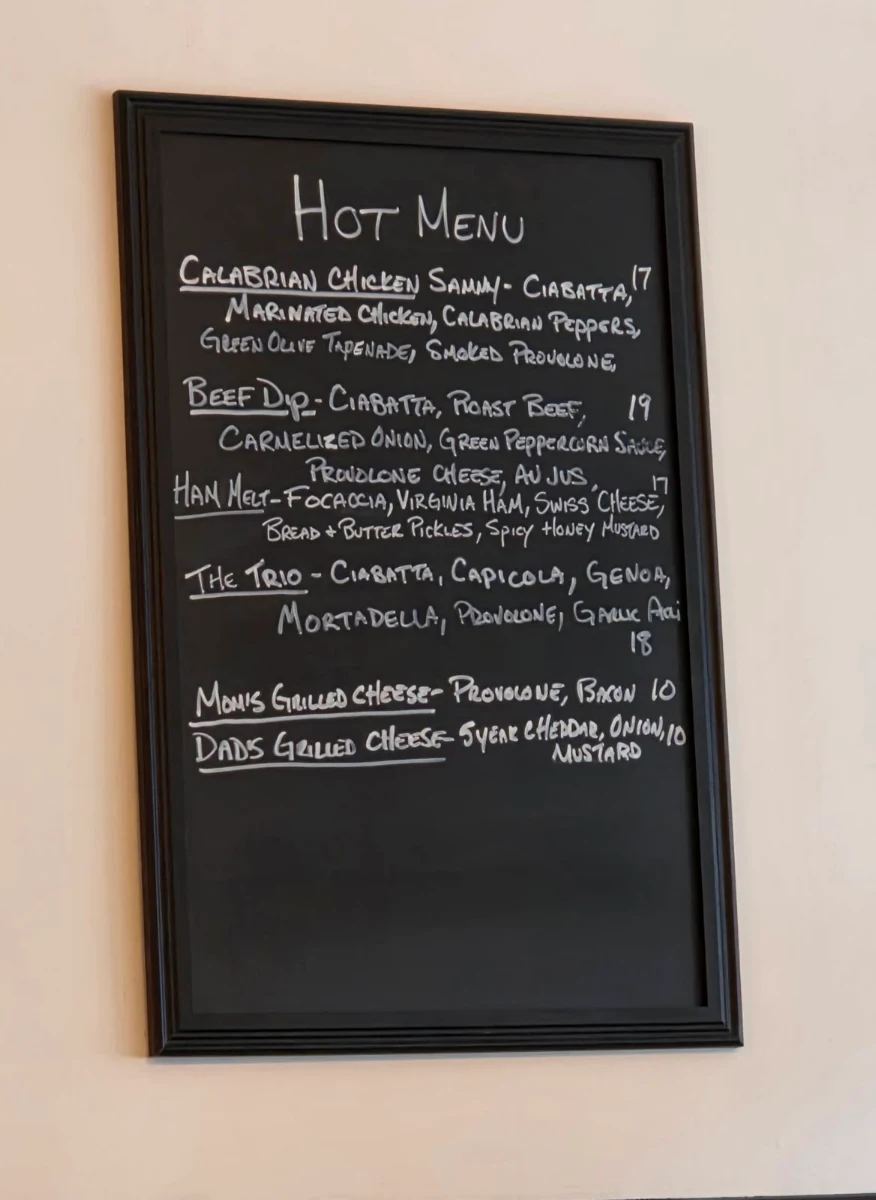 HOT MENU
CALABRIAN CHICKEN SAMMY - CIABATTA, 17
MARINATED CHICKEN, CALABRIAN PEPPERS,
GREEN OLIVE TAPENADE, SMOKED PROVOLONE,
BEEF DIP - CIABATTA, ROAST BEEF, 19
CARMELIZED ONION, GREEN PEPPERCORN SAUCE,
PROVOLONE CHEESE, AU JUS,
HAM MELT - FOCACCIA, VIRGINIA HAM, SWISS CHEESE, 17
BREAD + BUTTER PICKLES, SPICY HONEY MUSTARD
THE TRIO - CIABATTA, CAPICOLA, GENOA,
MORTADELLA, PROVOLONE, GARLIC
18
MOM'S GRILLED CHEESE - PROVOLONE, BACON 10
DAD'S GRILLED CHEESE - 5 YEAR CHEDDAR, ONION, 10
MUSTARD